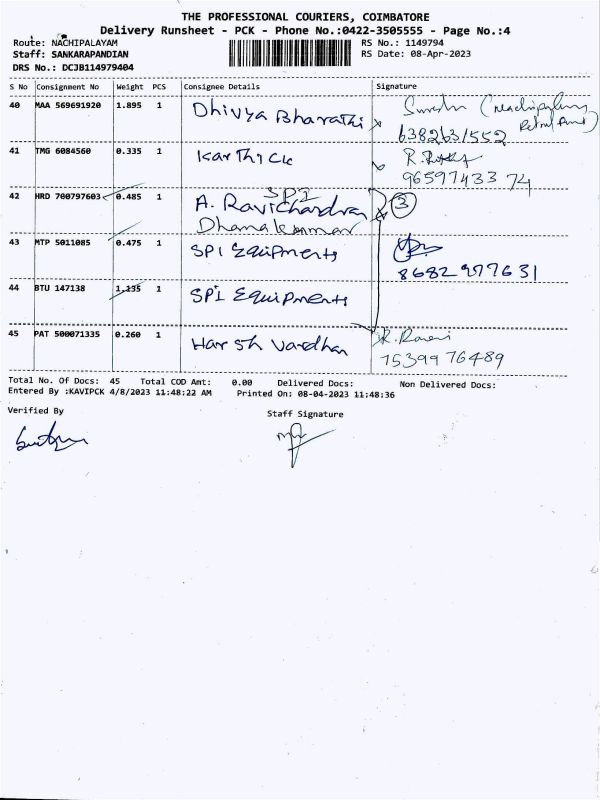 THE PROFESSIONAL COURIERS, COIMBATORE
Delivery Runsheet - PCK - Phone No.:0422-3505555 - Page No.:4
Route: NACHIPALAYAM
RS No.: 1149794
Staff: SANKARAPANDIAN
RS Date: 08-Apr-2023
DRS No.: DCJB114979404
S No Consignment No Weight PCS Consignee Details Signature
40 MAA 569691920 1.895 1 Dhivya Bharathi
6382631552
41 TMG 6084560 0.335 1 Karthick
96597433 74
42 HRD 700797603 0.485 1 A. Ravichandran SPI 3
43 MTP 5011085 0.475 1 SPI Equipments
8682977631
44 BTU 147138 1.135 1 SPI Equipments
45 PAT 500071335 0.260 1 Harsh Vardhan
7539976489
Total No. Of Docs: 45 Total COD Amt: 0.00 Delivered Docs: Non Delivered Docs:
Entered By :KAVIPCK 4/8/2023 11:48:22 AM Printed On: 08-04-2023 11:48:36
Verified By
Staff Signature